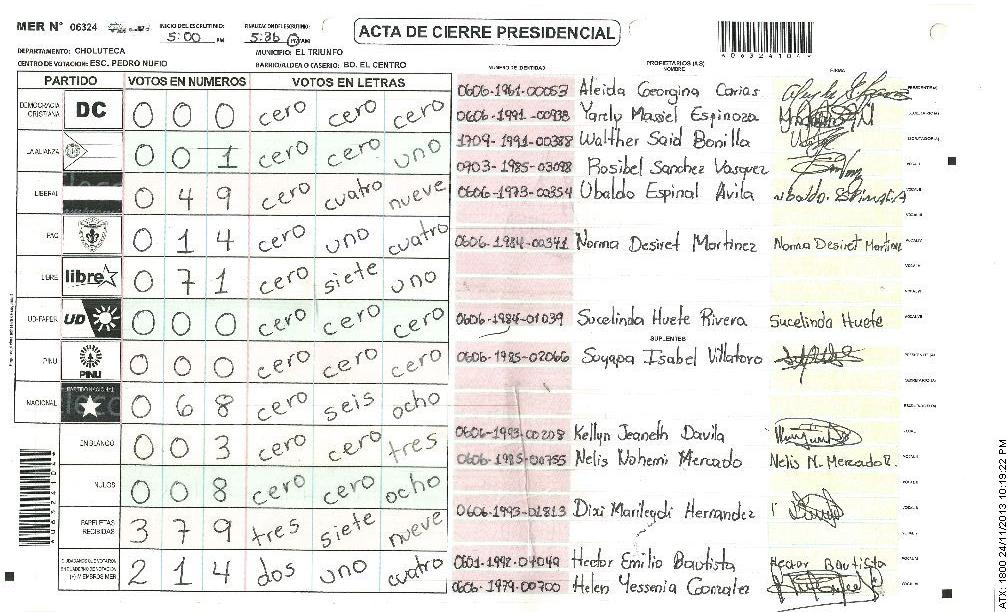 MER N° 06324
INICIO DEL ESCRUTINIO:
5:00
FINALIZACION DEL ESCRUTINIO:
5:36
ACTA DE CIERRE PRESIDENCIAL
DEPARTAMENTO: CHOLUTECA
MUNICIPIO: EL TRIUNFO
CENTRO DE VOTACION: ESC. PEDRO NUFIO
BARRIO/ALDEA O CASERIO: BO. EL CENTRO
PARTIDO VOTOS EN NUMEROS VOTOS EN LETRAS
DEMOCRACIA CRISTIANA DC 0 0 0 cero cero cero
LA ALIANZA 0 0 1 cero cero uno
LIBERAL 0 4 9 cero cuatro nueve
PAC 0 1 4 cero uno cuatro
LIBRE libre 0 7 1 cero siete uno
UD-FAPER UD 0 0 0 cero cero cero
PINU PINU 0 0 0 cero cero cero
NACIONAL 0 6 8 cero seis ocho
EN BLANCO 0 0 3 cero cero tres
NULOS 0 0 8 cero cero ocho
PAPELETAS RECIBIDAS 3 7 9 tres siete nueve
2 1 4 dos uno cuatro
NUMERO DE IDENTIDAD PROPIETARIOS (AS) NOMBRE FIRMA
0606-1961-00053 Aleida Georgina Carias
0606-1991-00938 Yarely Massiel Espinoza
1709-1991-00388 Walther Said Bonilla
0903-1985-03098 Rosibel Sanchez Vasquez
0606-1973-00354 Ubaldo Espinal Avila
0606-1984-00341 Norma Desiret Martinez Norma Desiret Martinez
0606-1984-01039 Sucelinda Huete Rivera Sucelinda Huete
SUPLENTES
0606-1985-02066 Suyapa Isabel Villatoro
0606-1993-00208 Kellyn Jeaneth Davila
0606-1985-00755 Nelis Nohemi Mercado Nelis N. Mercado R.
0606-1993-01813 Dixi Marileydi Hernandez
0601-1992-04049 Hector Emilio Bautista Hector Bautista
0606-1979-00700 Helen Yessenia Gonzalez
ATX-1800 24/11/2013 10:19:22 PM